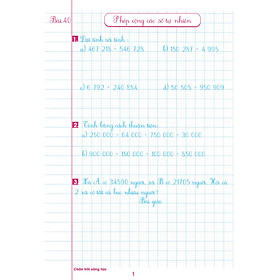 Bài 40
Phép cộng các số tự nhiên
1. Đặt tính và tính :
a) 467 218 + 546 728
b) 150 287 + 4 995
c) 6 792 + 240 854
d) 50 505 + 950 909
2 Tính bằng cách thuận tiện.
a) 250 000 + 64 000 + 750 000 + 36 000
b) 900 000 + 150 000 + 100 000 + 350 000
3 Xã A có 34590 người, xã B có 21705 người. Hỏi cả
2 xã có tất cả bao nhiêu người?
Bài giải
Chân trời sáng tạo
1